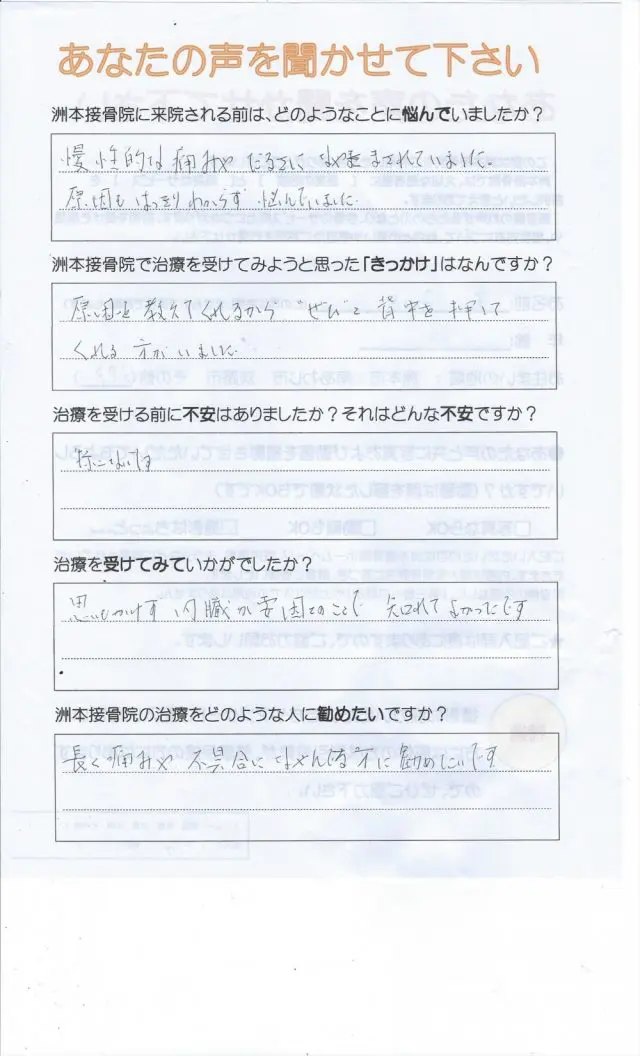 あなたの声を聞かせて下さい
洲本接骨院に来院される前は、どのようなことに悩んでいましたか？
慢性的な痛みや だるさに 悩まされていました。
原因も はっきり わからず 悩んでいました
洲本接骨院で治療を受けてみようと思った「きっかけ」はなんですか？
原因を教えてくれるから "ぜひ"と 背中を押して
くれる 方がいました
治療を受ける前に不安はありましたか？それはどんな不安ですか？
特にないです
治療を受けてみていかがでしたか？
思いもかけず 内臓が要因とのことで 知れて よかったです
洲本接骨院の治療をどのような人に勧めたいですか？
長く痛みや 不具合に なやんでる方に 勧めたいです